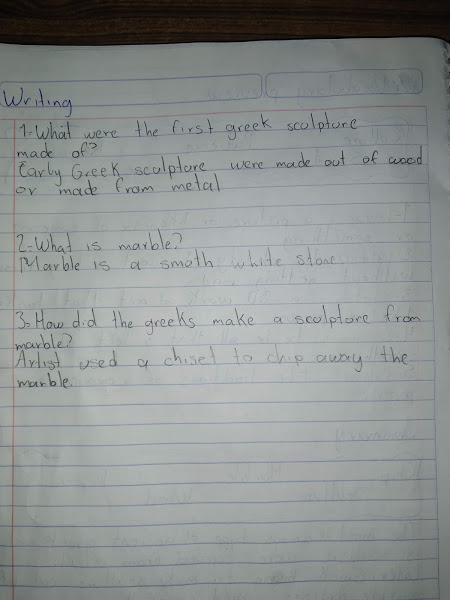 Writing
1-What were the first greek sculpture
made of?
Early Greek sculpture were made out of wood
or made from metal
2-What is marble?
Marble is a smoth white stone
3-How did the greeks make a sculpture from
marble?
Artist used a chisel to chip away the
marble.